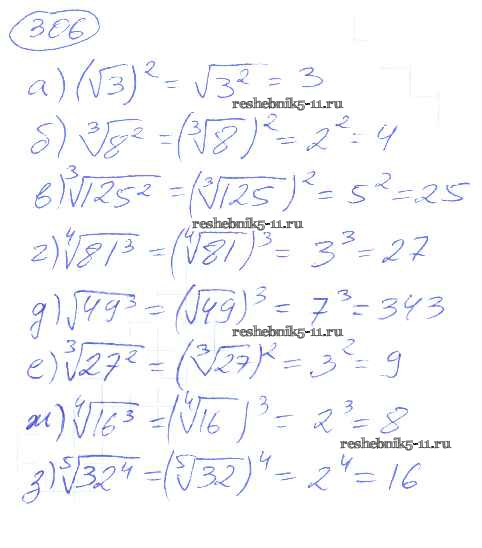 306
а) (√3)² = √3² = 3
reshebnik5-11.ru
б) ³√8² = (³√8)² = 2² = 4
в) ³√125² = (³√125)² = 5² = 25
reshebnik5-11.ru
г) ⁴√81³ = (⁴√81)³ = 3³ = 27
д) √49³ = (√49)³ = 7³ = 343
reshebnik5-11.ru
е) ³√27² = (³√27)² = 3² = 9
ж) ⁴√16³ = (⁴√16)³ = 2³ = 8
reshebnik5-11.ru
з) ⁵√32⁴ = (⁵√32)⁴ = 2⁴ = 16